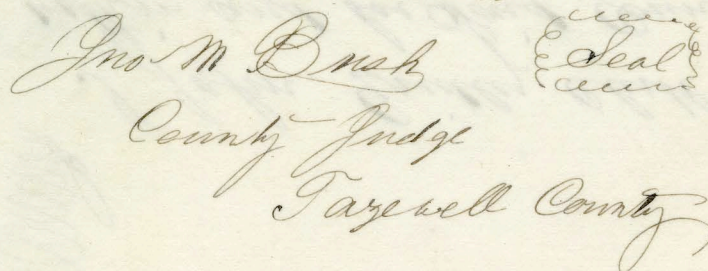 Jno M Bush Seal
County Judge
Tazewell County